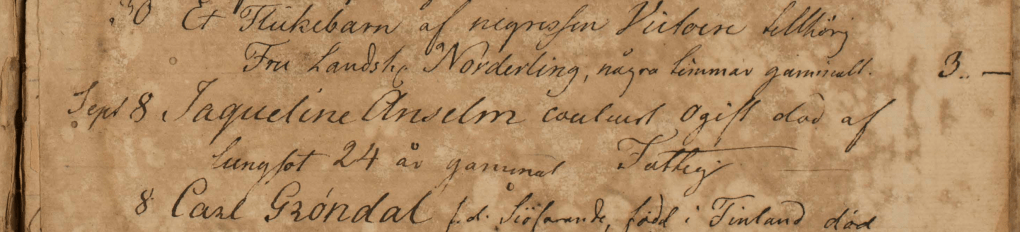 30 Et Flickebarn af negressen Victoire tillhörig
Fru Landsh: Norderling, några timmar gammalt. 3.. —
Sept 8 Jaqueline Anselm couleurt ogift död af
lungsot 24 år gammal Fattig
8 Carl Gröndal f.d. Siöfarande, född i Finland död